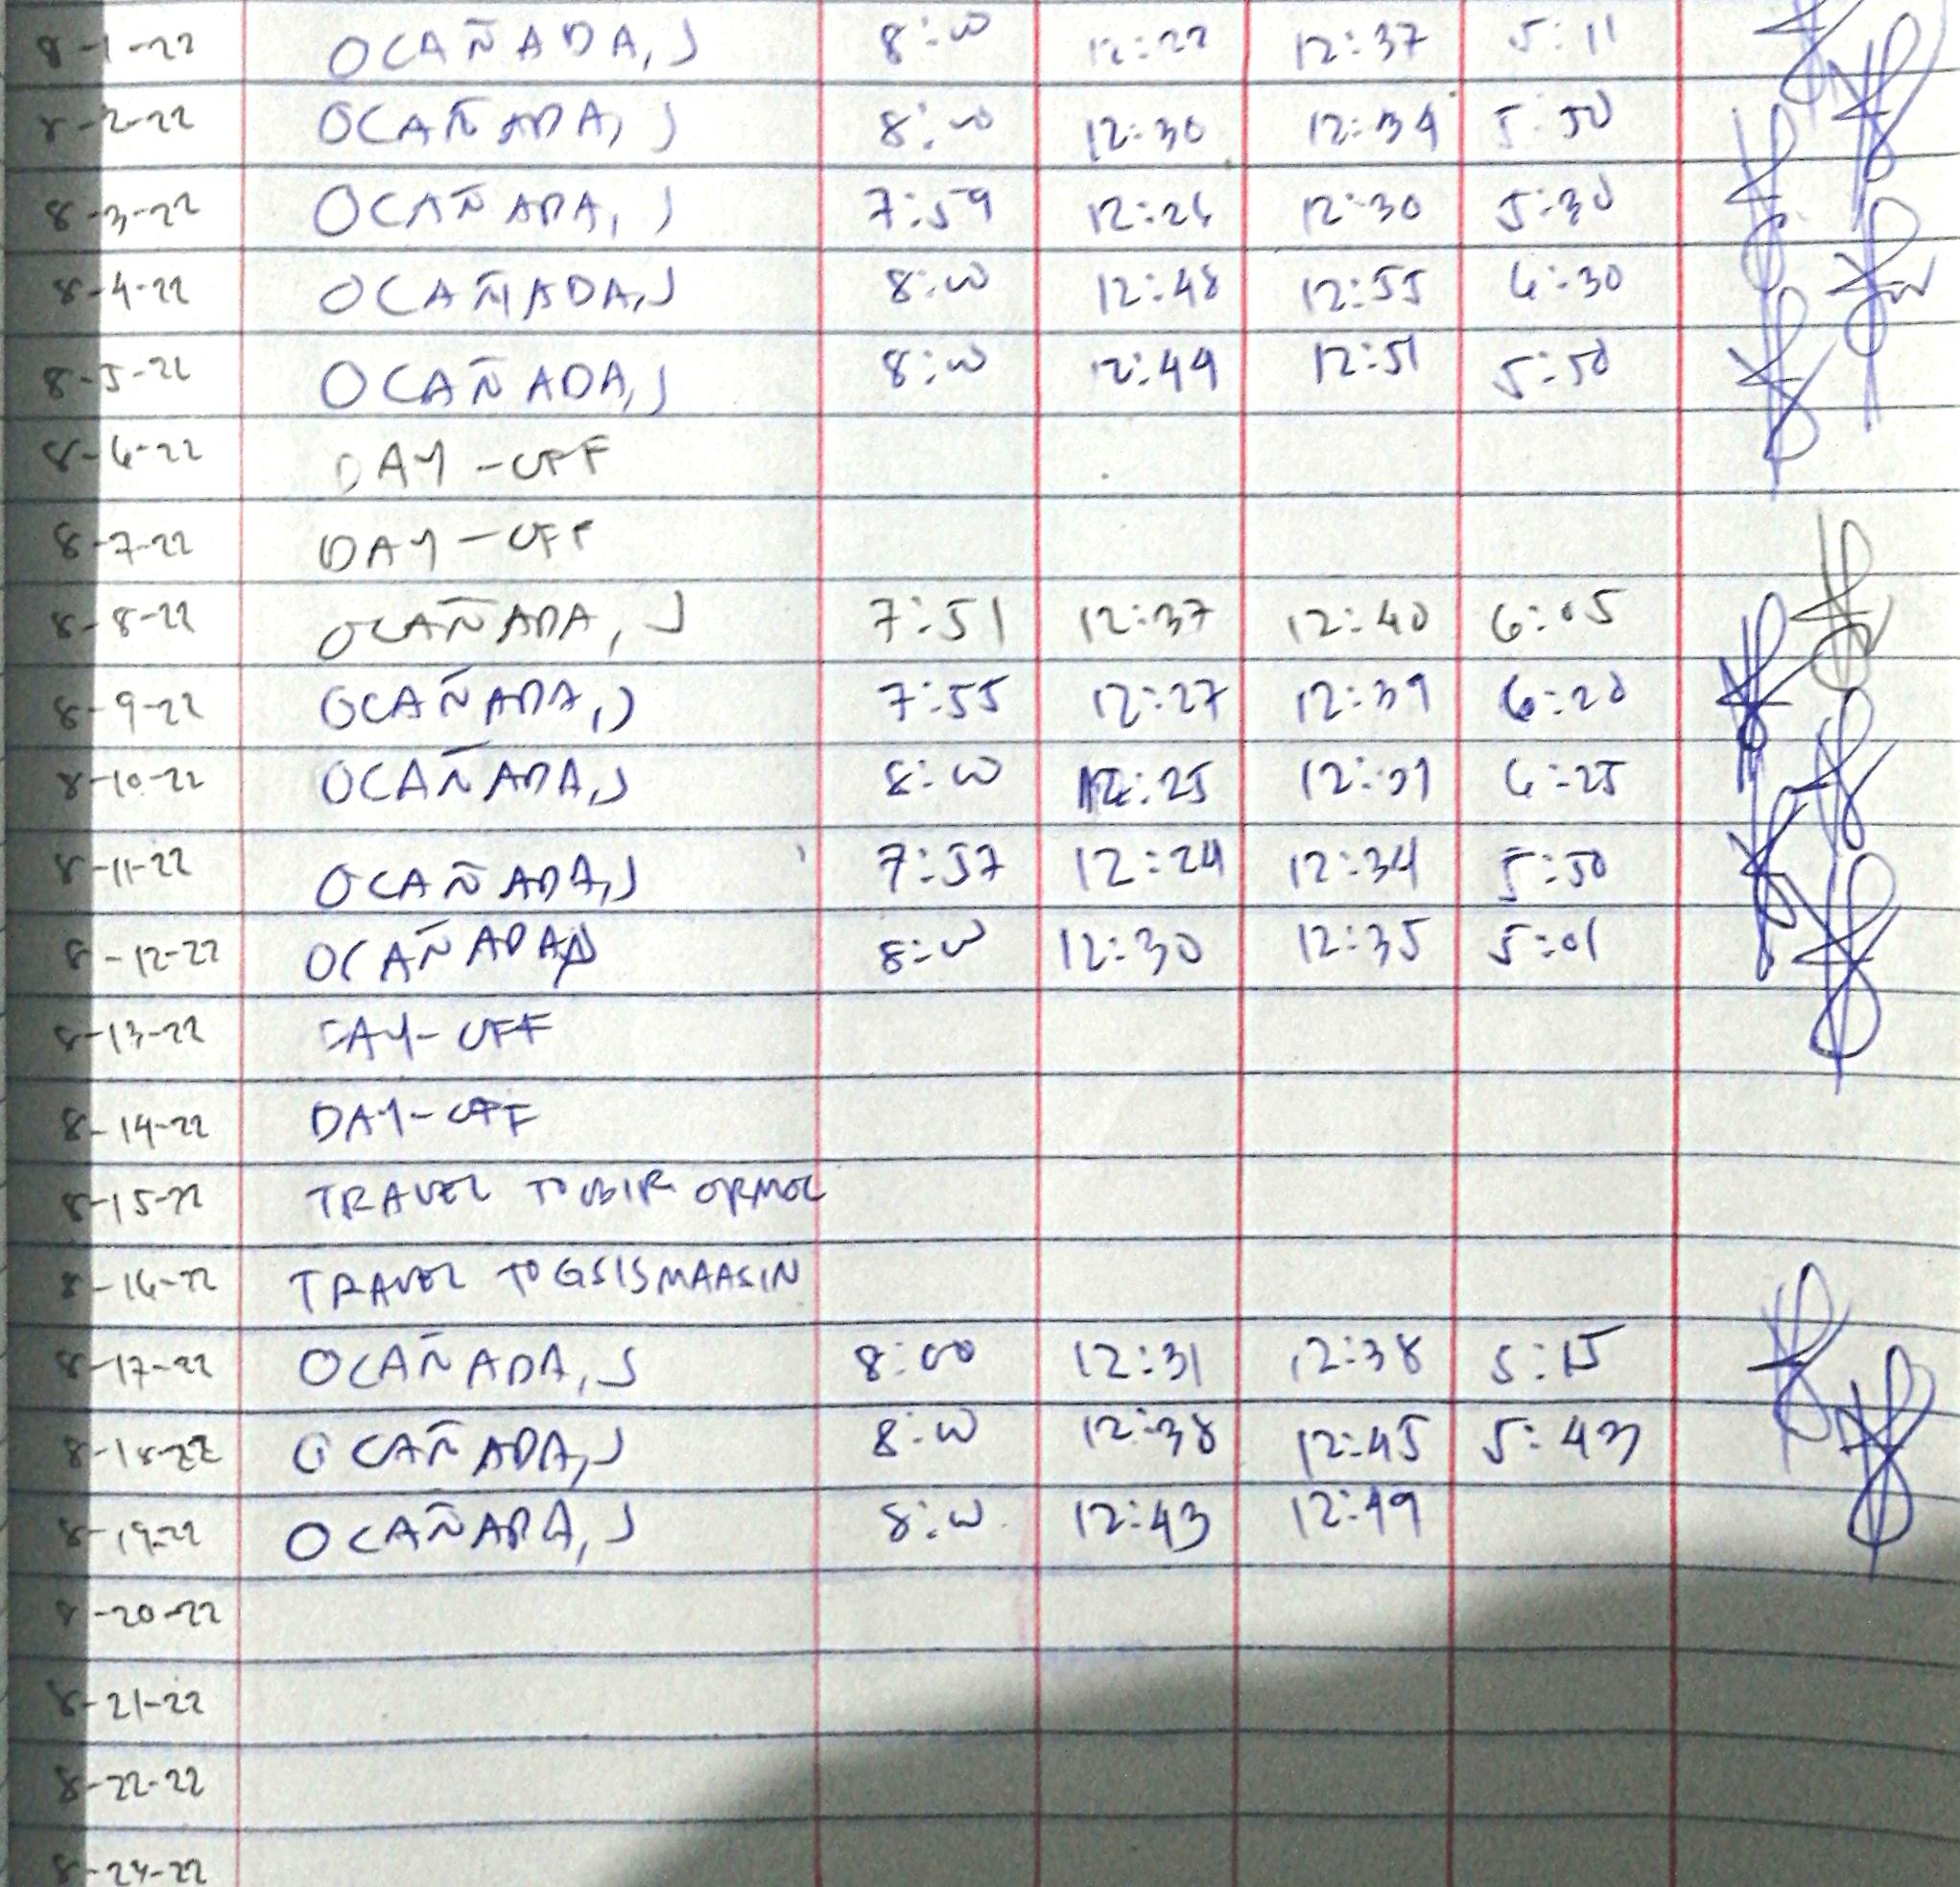 8-1-22 OCAÑADA, J 8:00 12:22 12:37 5:11
8-2-22 OCAÑADA, J 8:00 12:30 12:34 5:50
8-3-22 OCAÑADA, J 7:59 12:26 12:30 5:30
8-4-22 OCAÑADA, J 8:00 12:48 12:55 6:30
8-5-22 OCAÑADA, J 8:00 12:49 12:51 5:50
8-6-22 DAY-OFF
8-7-22 DAY-OFF
8-8-22 OCAÑADA, J 7:51 12:37 12:40 6:05
8-9-22 OCAÑADA, J 7:55 12:27 12:39 6:20
8-10-22 OCAÑADA, J 8:00 12:25 6:25
8-11-22 OCAÑADA, J 7:57 12:24 12:34 5:50
8-12-22 OCAÑADA, J 8:00 12:30 12:35 5:01
8-13-22 DAY-OFF
8-14-22 DAY-OFF
8-15-22 TRAVEL TO BIR ORMOC
8-16-22 TRAVEL TO GSIS MAASIN
8-17-22 OCAÑADA, J 8:00 12:31 12:38 5:15
8-18-22 OCAÑADA, J 8:00 12:38 12:45 5:43
8-19-22 OCAÑADA, J 8:00 12:43 12:49
8-20-22
8-21-22
8-22-22
8-24-22